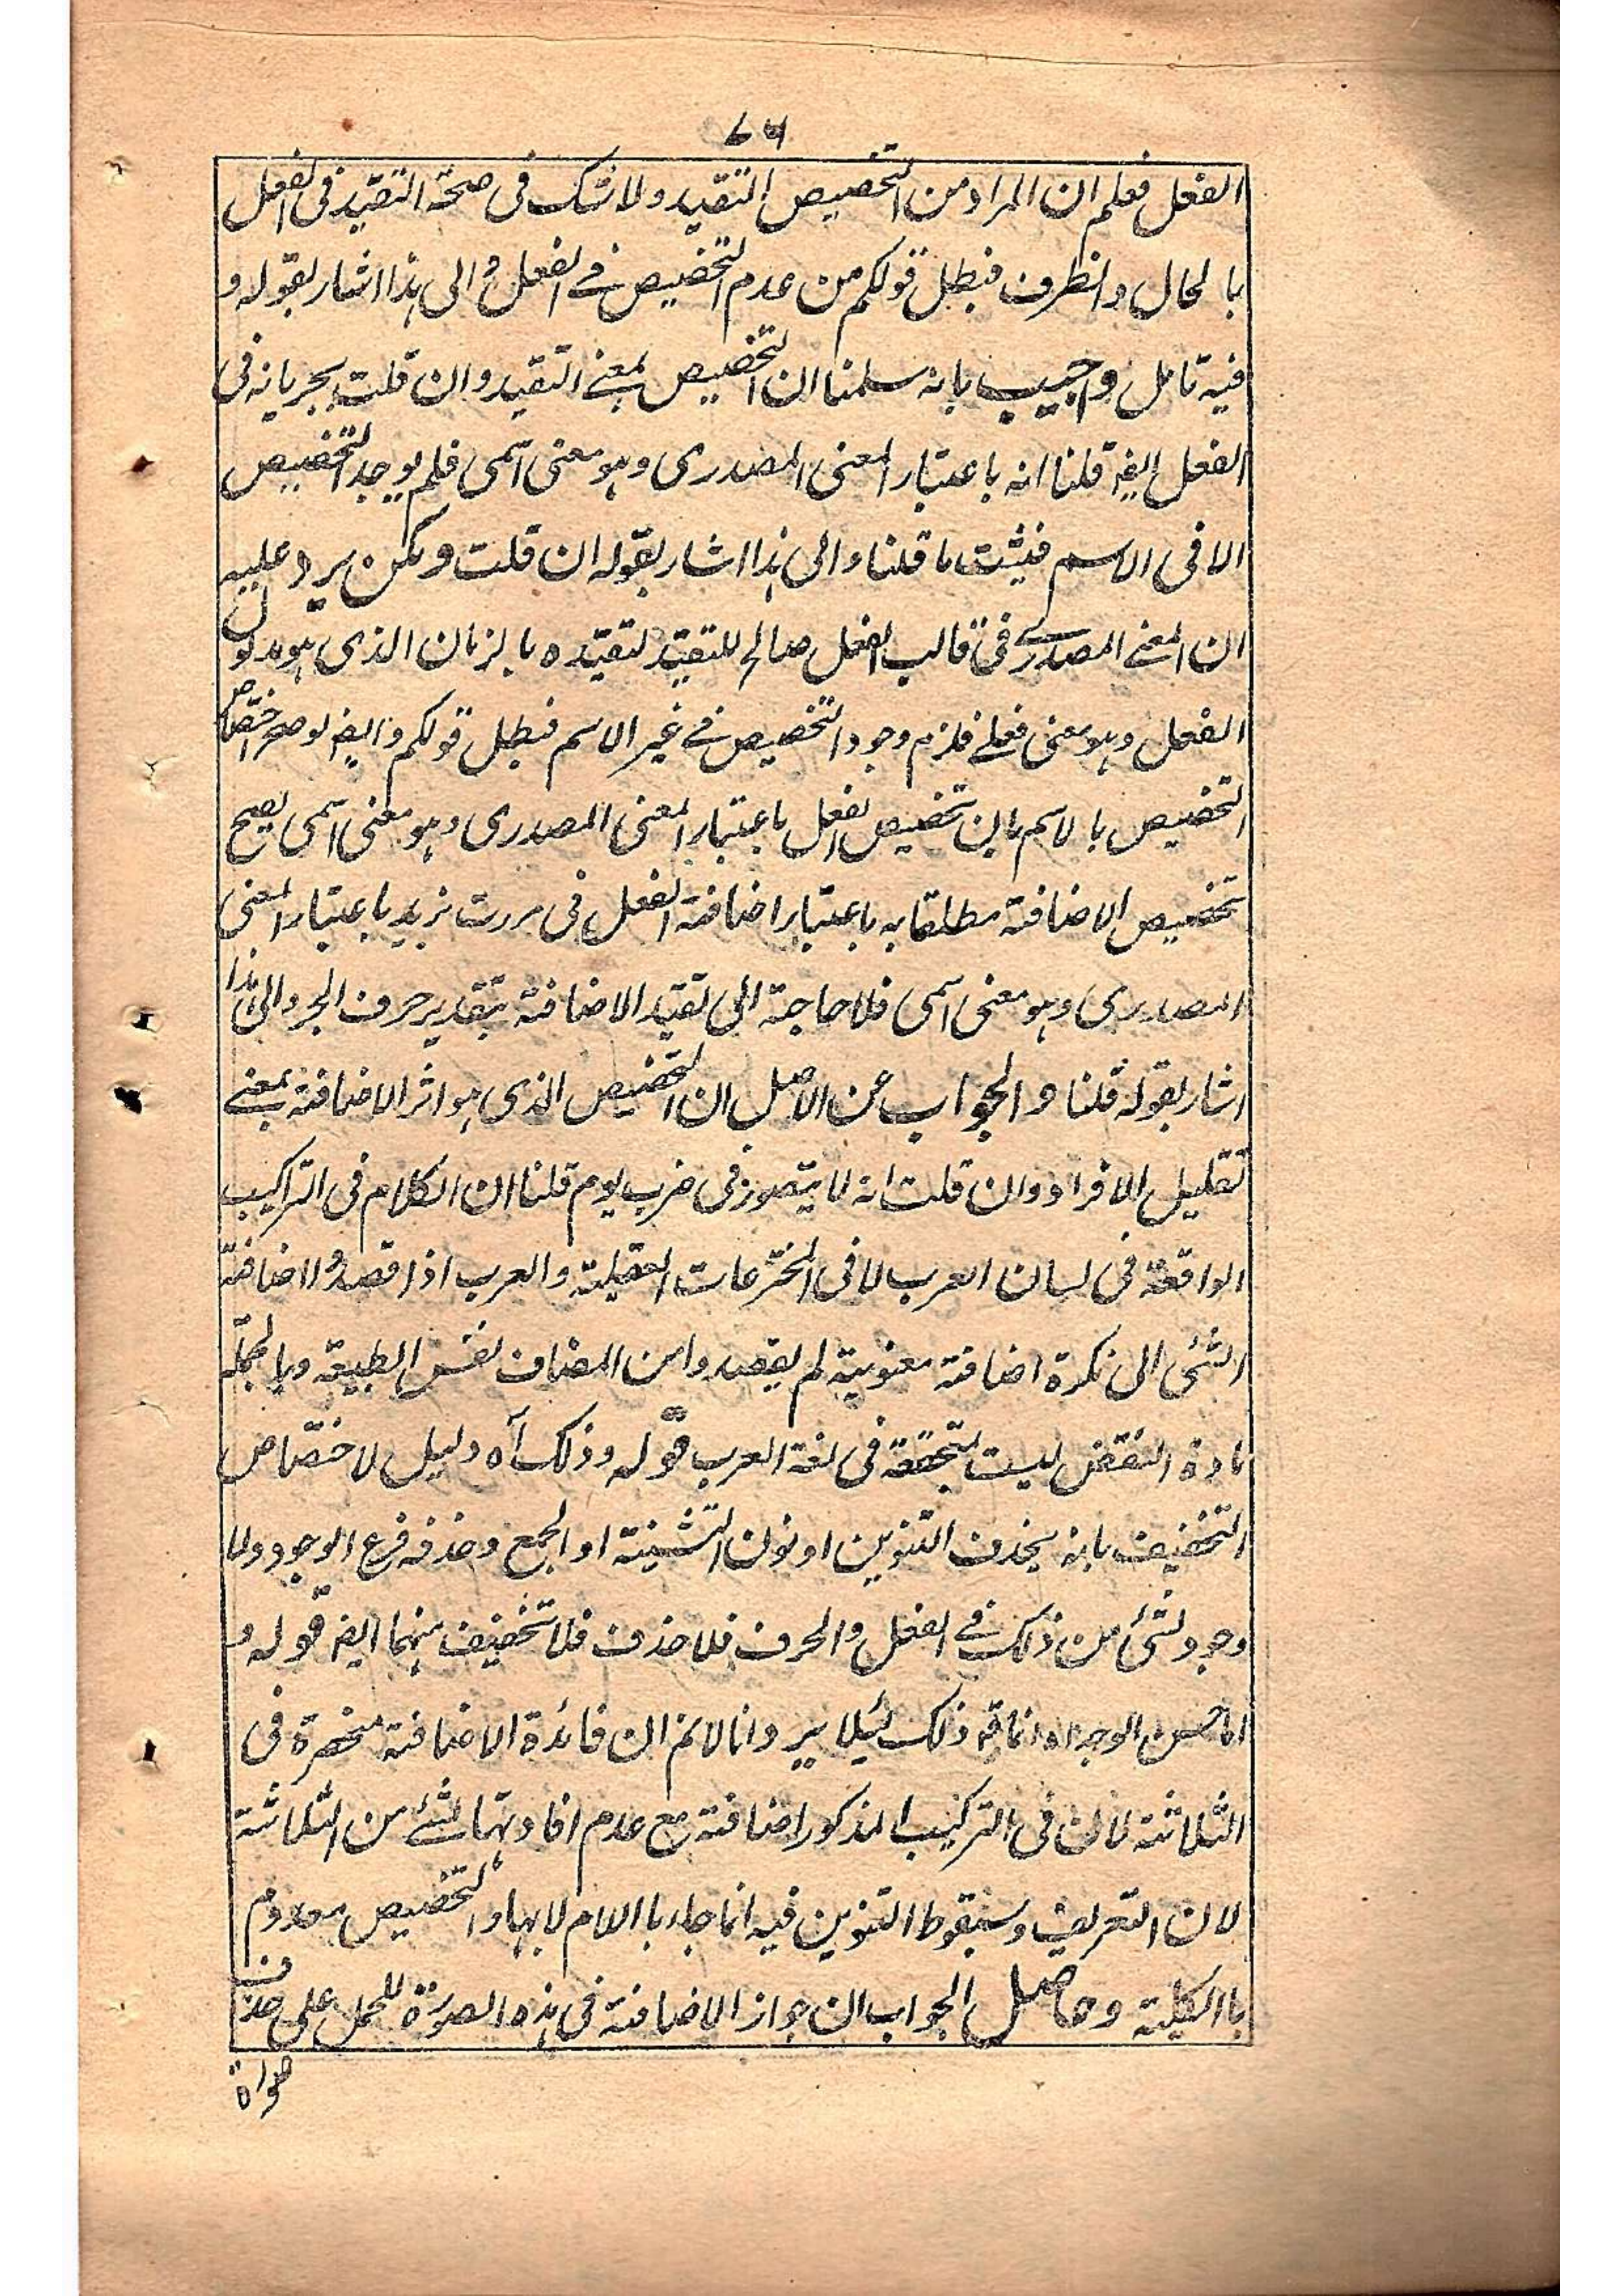 ۷۶
الفعل فعلم ان المراد من التخصيص التقيد ولا شك فى صحة التقيد فى الفعل
بالحال والظرف فبطل قولكم من عدم التخصيص فے الفعل والى هذا اشار بقوله و
فيه تامل واجيب بانه سلمنا ان التخصيص بمعنے التقيد وان قلت بجريانه فى
الفعل ايضه قلنا انه باعتبار المعنى المصدرى وهو معنى اسمى فلم يوجد التخصيص
الا فى الاسم فيثبت ما قلنا والى هذا اشار بقوله ان قلت ولكن يرد عليه
ان المعنے المصدرے فى قالب الفعل صالح للتقيد لتقيده بالزمان الذى هو مدلول
الفعل وهو معنى فعلے فلزم وجود التخصيص فے غير الاسم فبطل قولكم وايضه لو صح اختصاص
التخصيص بالاسم بان تخصيص الفعل باعتبار المعنى المصدرى وهو معنى اسمى يصح
تخصيص الاضافة مطلقا به باعتبار اضافة الفعل فى مررت بزيد باعتبار المعنى
المصدرى وهو معنى اسمى فلا حاجة الى تقيد الاضافة بتقدير حرف الجر والى هذا
اشار بقوله قلنا والجواب عن الاصل ان التخصيص الذى هو اثر الاضافة بمعنے
تقليل الافراد وان قلت انه لا يتصور فى ضرب يوم قلنا ان الكلام فى التراكيب
الواقعة فى لسان العرب لا فى المخترعات العقلية والعرب اذا قصدوا اضافة
الشئى الى نكرة اضافة معنوية لم يقصدوا من المضاف نفس الطبيعة وبالجملة
مادة النقض ليست بتحققة فى لغة العرب قوله وذلك آه دليل لاختصاص
التخفيف بانه بحذف التنوين او نون التثنية او الجمع وحذفه فرع الوجود ولا
وجود لشئ من ذلك فے الفعل والحرف فلا حذف فلا تخفيف منهما ايضه قوله و
اما حسن الوجه اه انما قه ذلك ليئلا يرد انا لا نم ان فائدة الاضافة منحصرة فى
الثلاثة لان فى التركيب المذكور اضافة مع عدم افادتها لشئے من الثلاثة
لان التعريف وسقوط التنوين فيه انما جاء باللام لا بها والتخصيص معدوم
باالكلية وحاصل الجواب ان جواز الاضافة فى هذه الصورة للحمل على حذف